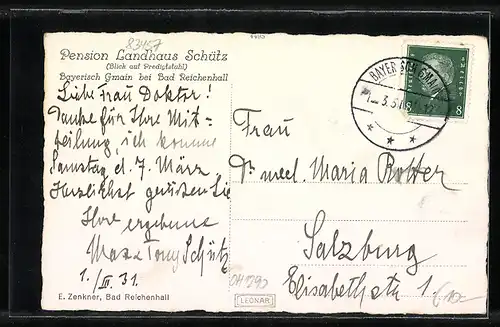 83457
Pension Landhaus Schütz
(Blick auf Predigtstuhl)
Bayerisch Gmain bei Bad Reichenhall
Liebe Frau Doktor!
Danke für Ihre Mit=
teilung, ich komme
Samstag, d. 7. März.
Herzlichst grüßen Sie
Ihre ergebene
Schütz
1./III. 31.
E. Zenkner, Bad Reichenhall
BAYERISCH GMAIN
8
8
Frau
Dr med. Maria Rotter
Salzburg
Elisabethstr 1
LEONAR